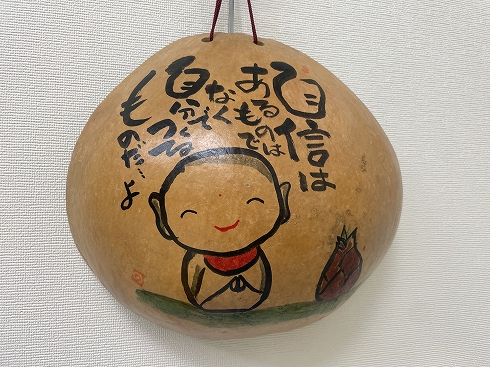 自信は
あるものでは
なく
自分でつくる
ものだ…よ